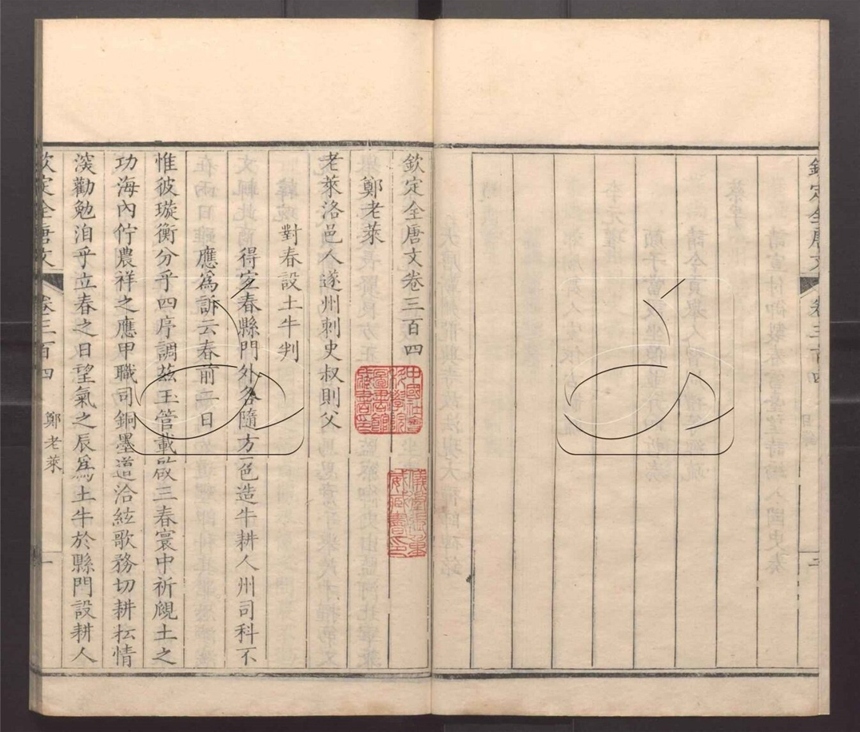 欽定全唐文
卷三百四
二
欽定全唐文卷三百四
鄭老萊
老萊洛邑人遂州刺史叔則父
對春設土牛判
得定春縣門外各隨方色造牛耕人州司科不
應為訴云春前二日
惟彼璇衡分乎四序調茲玉管載啟三春寰中祈覛土之
功海內佇農祥之應甲職司銅墨道洽絃歌務切耕耘情
深勸勉洎乎立春之日望氣之辰為土牛於縣門設耕人
欽定全唐文
卷三百四
鄭老萊
一